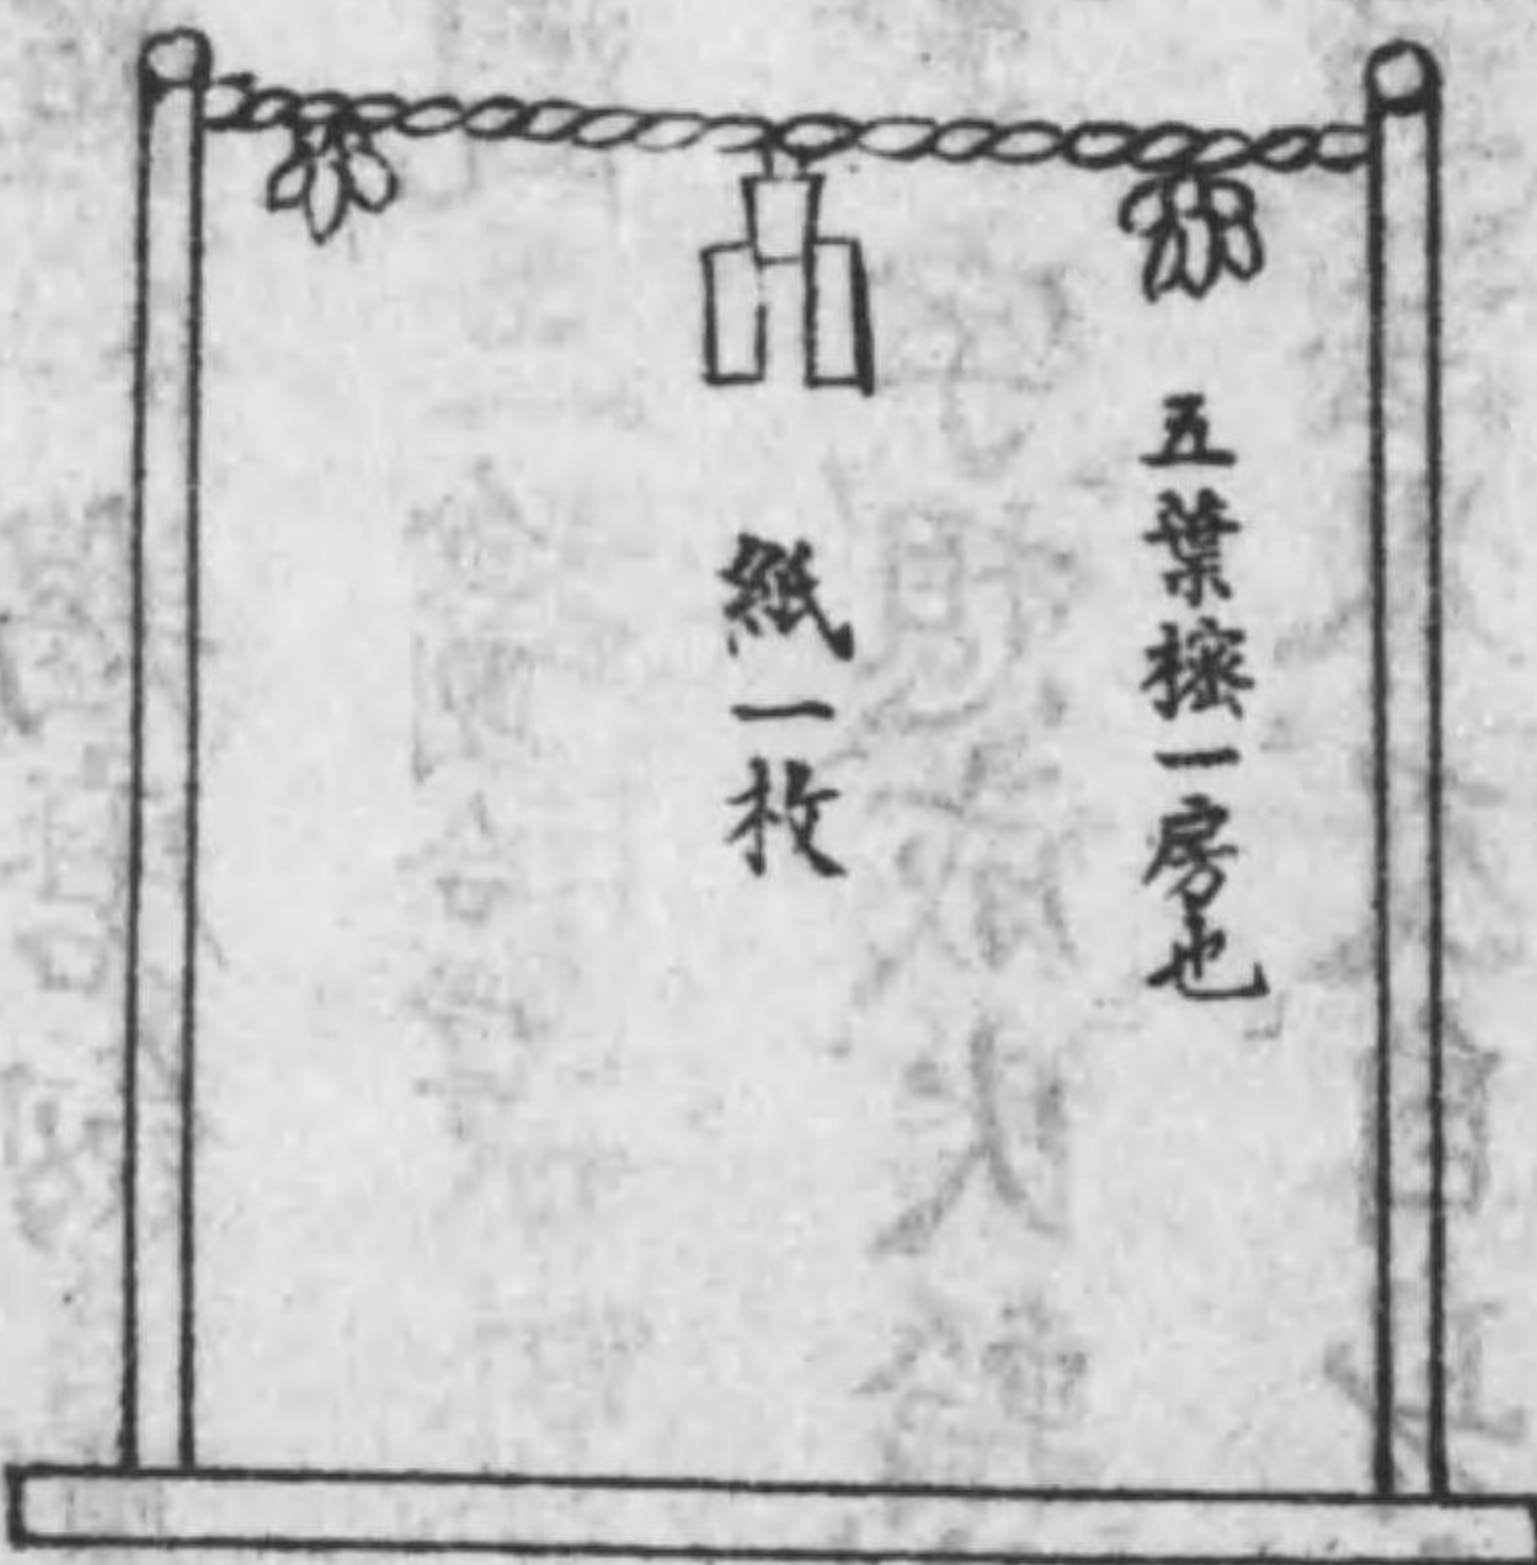 五葉樒一房也
紙一枚